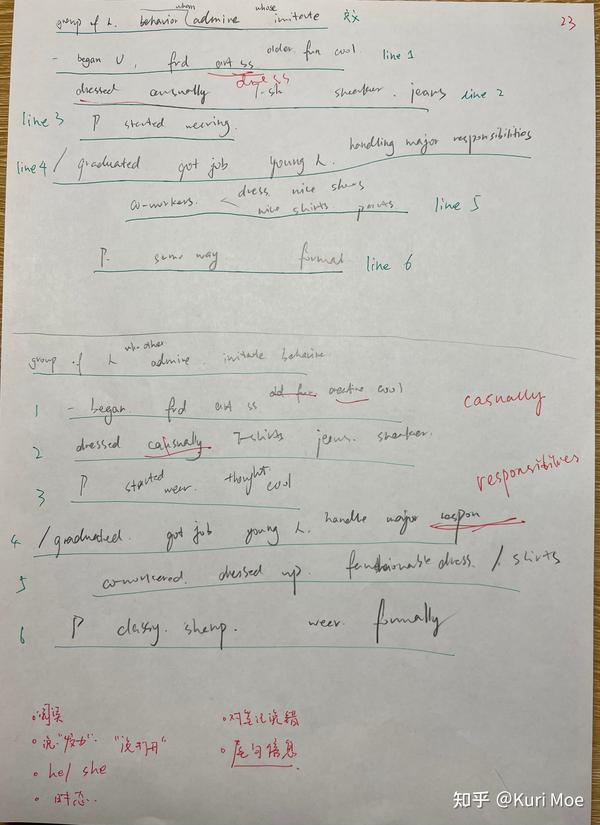 whom whose
group of L. behavior admire imitate 定义
23
- began U, frd art ss older. fun cool line 1
dress
dressed casually T-sh sneaker. jeans line 2
line 3 P started wearing.
line 4 / graduated got job young L. handling major responsibilities
co-workers. < dress. nice shoes
nice shirts pants line 5
P. same way formal line 6
who other
group of L admire. imitate behavior
1 - began frd art ss old fun creative cool
casually
2 dressed casually T-shirts jeans. sneaker.
3 P started wear. thought cool
responsibilities
4 / graduated. got job young L. handle major respon
5 co-workered. dressed up. fashionable dress. / shirts
6 P classy. sharp. wear. formally
· he/ she
· 时态.
· 尾句信息
知乎 @Kuri Moe